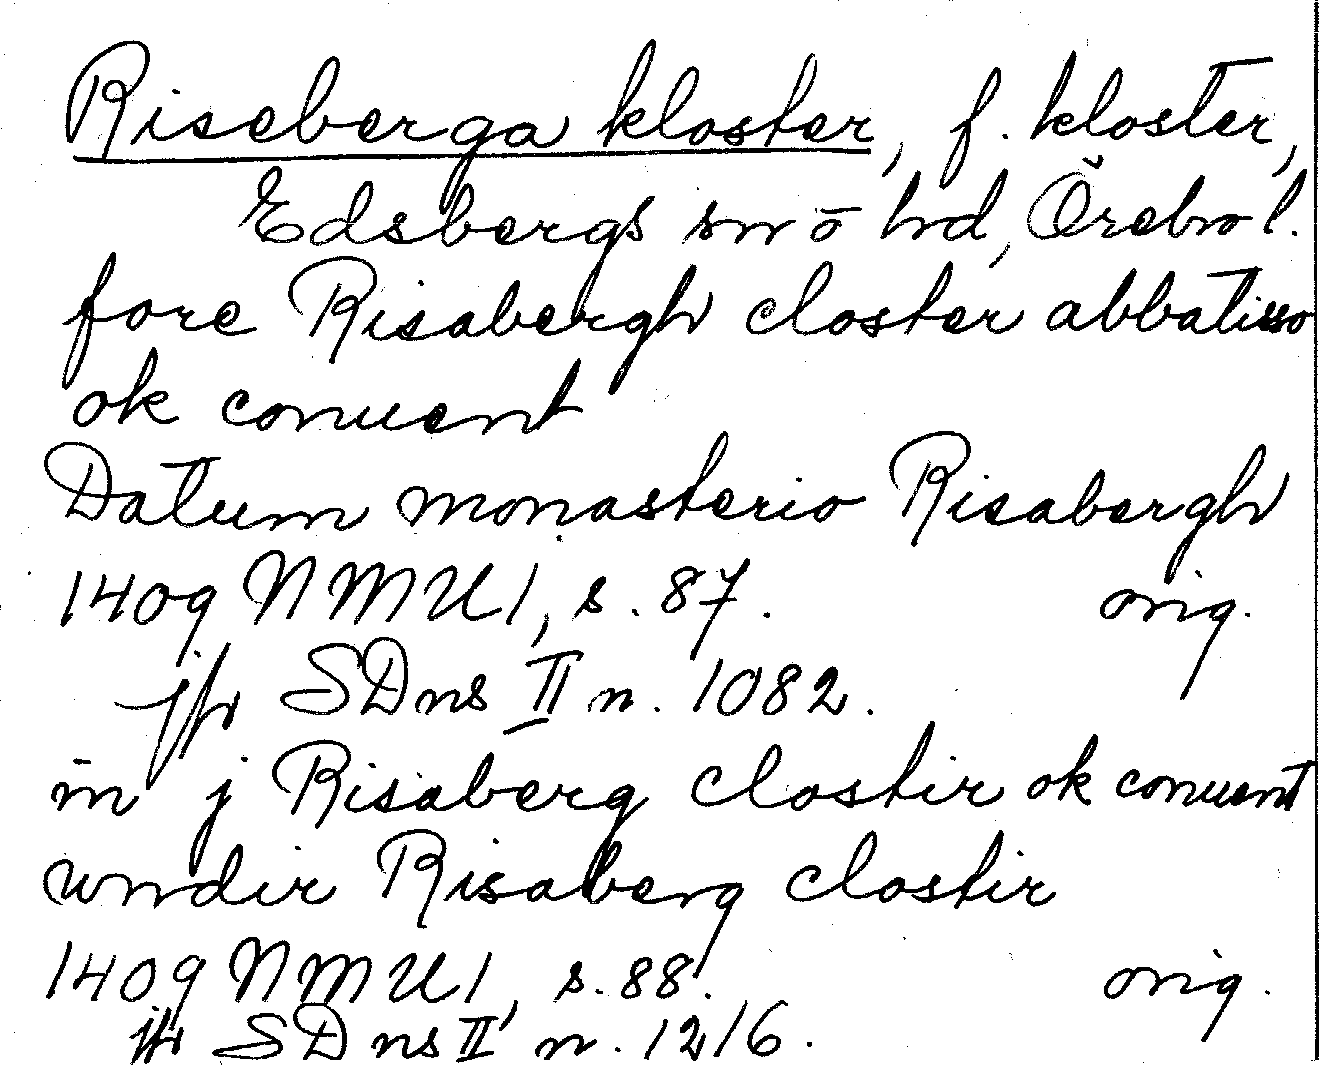 Riseberga kloster, f. kloster,
Edsbergs sn o hd, Örebro l.
fore Risabergh closter abbatisso
ok conuent
Datum monasterio Risabergh
1409 NMU 1, s. 87. orig.
jfr SDns II n. 1082.
in j Risaberg clostir ok conuent
vndir Risaberg clostir
1409 NMU 1, s. 88. orig.
jfr SDns II n. 1216.